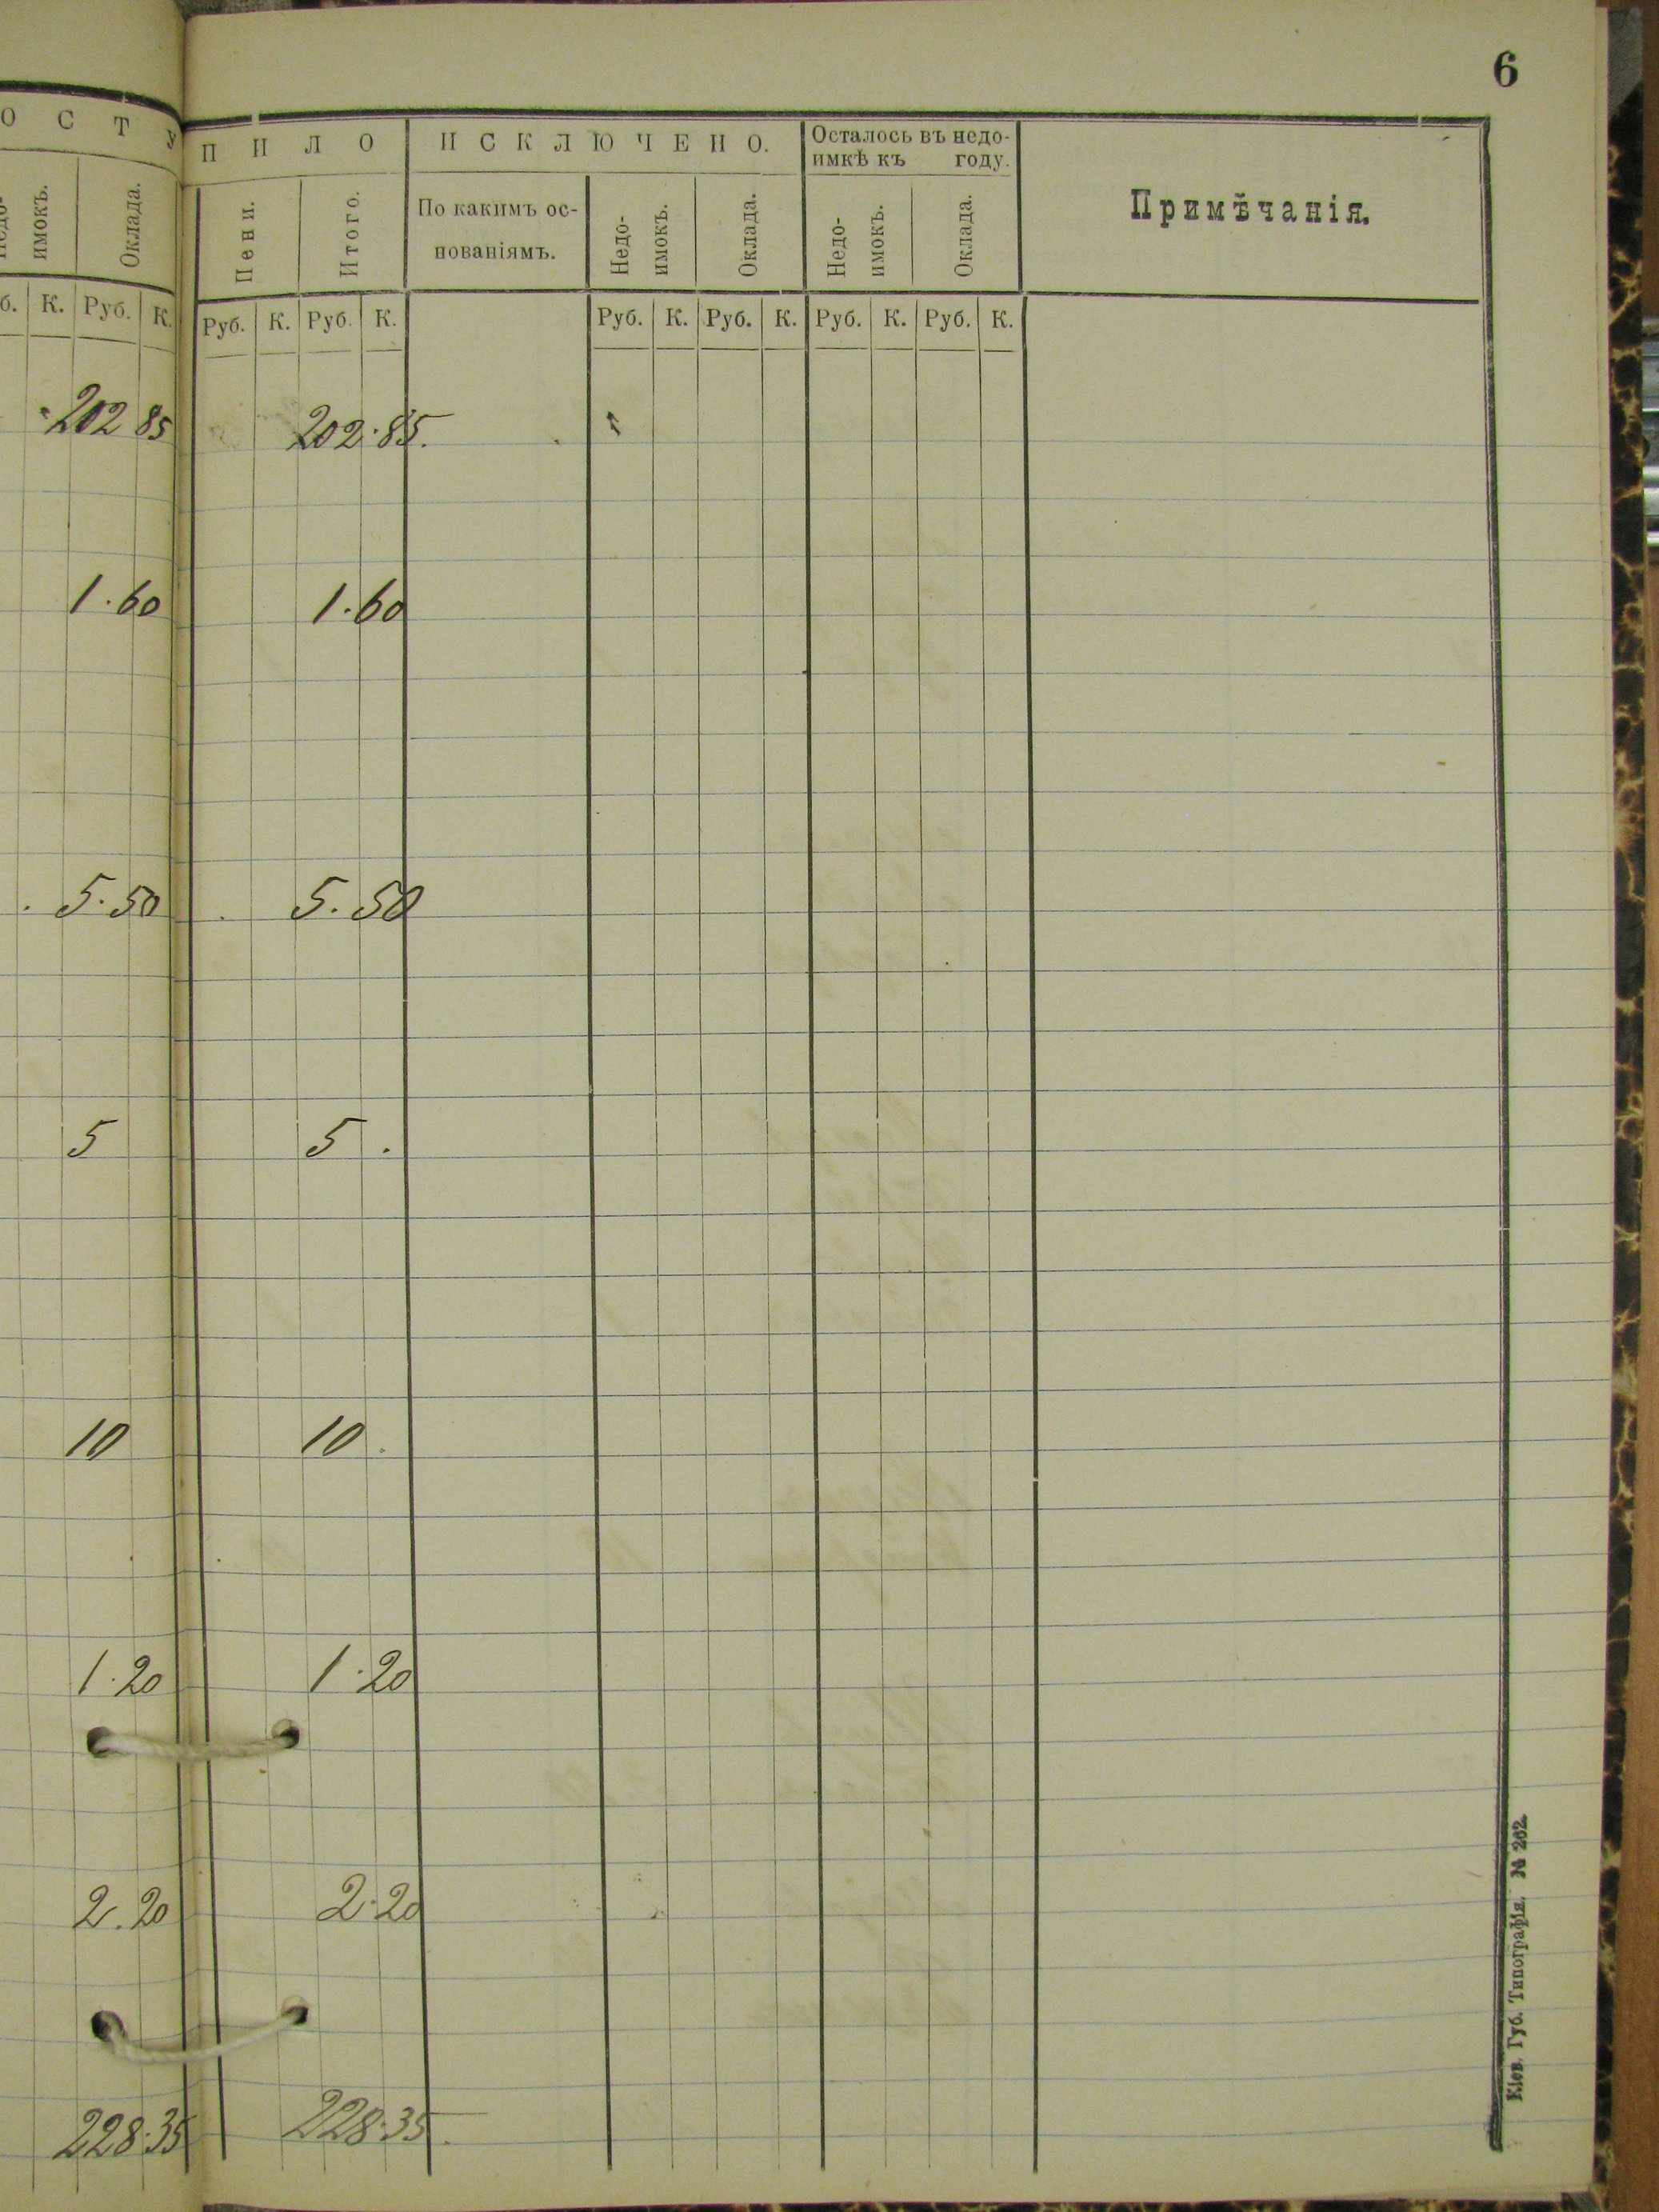 6
О С Т У П И Л О И С К Л Ю Ч Е Н О. Осталось въ недо-
имкѣ къ году.
Недо-
имокъ. Оклада. Пени. Итого. По какимъ ос-
нованіямъ. Недо-
имокъ. Оклада. Недо-
имокъ. Оклада. Примѣчанія.
б. К. Руб. К. Руб. К. Руб. К. Руб. К. Руб. К. Руб. К. Руб. К.
202 85 202·85.
1·60 1·60
5·50 5·50
5 5 .
10 10 .
1·20 1·20
2.20 2·20
228·35 228·35.
Кіев. Губ. Типографія. № 262.